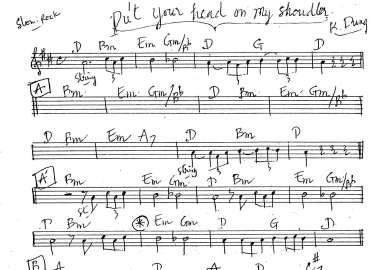 Slow: Rock Put your head on my shoulder
K. Dung
D Bm Em Gm/Bb D G D
String 3 3
A Bm Em Gm/Bb Bm Em Gm/Bb
D Bm Em A7 D Bm D
String 3 3
A' Bm Em Gm D Bm Em Gm/Bb
3 3
D Bm Em Gm D G D
3 3
B A D A D C#